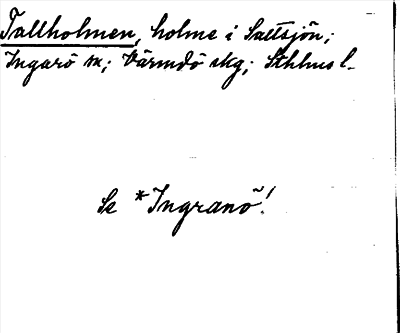 Tallholmen, holme i Saltsjön;
Ingarö sn; Värmdö skg; Sthlms l.
Se *Ingranö!